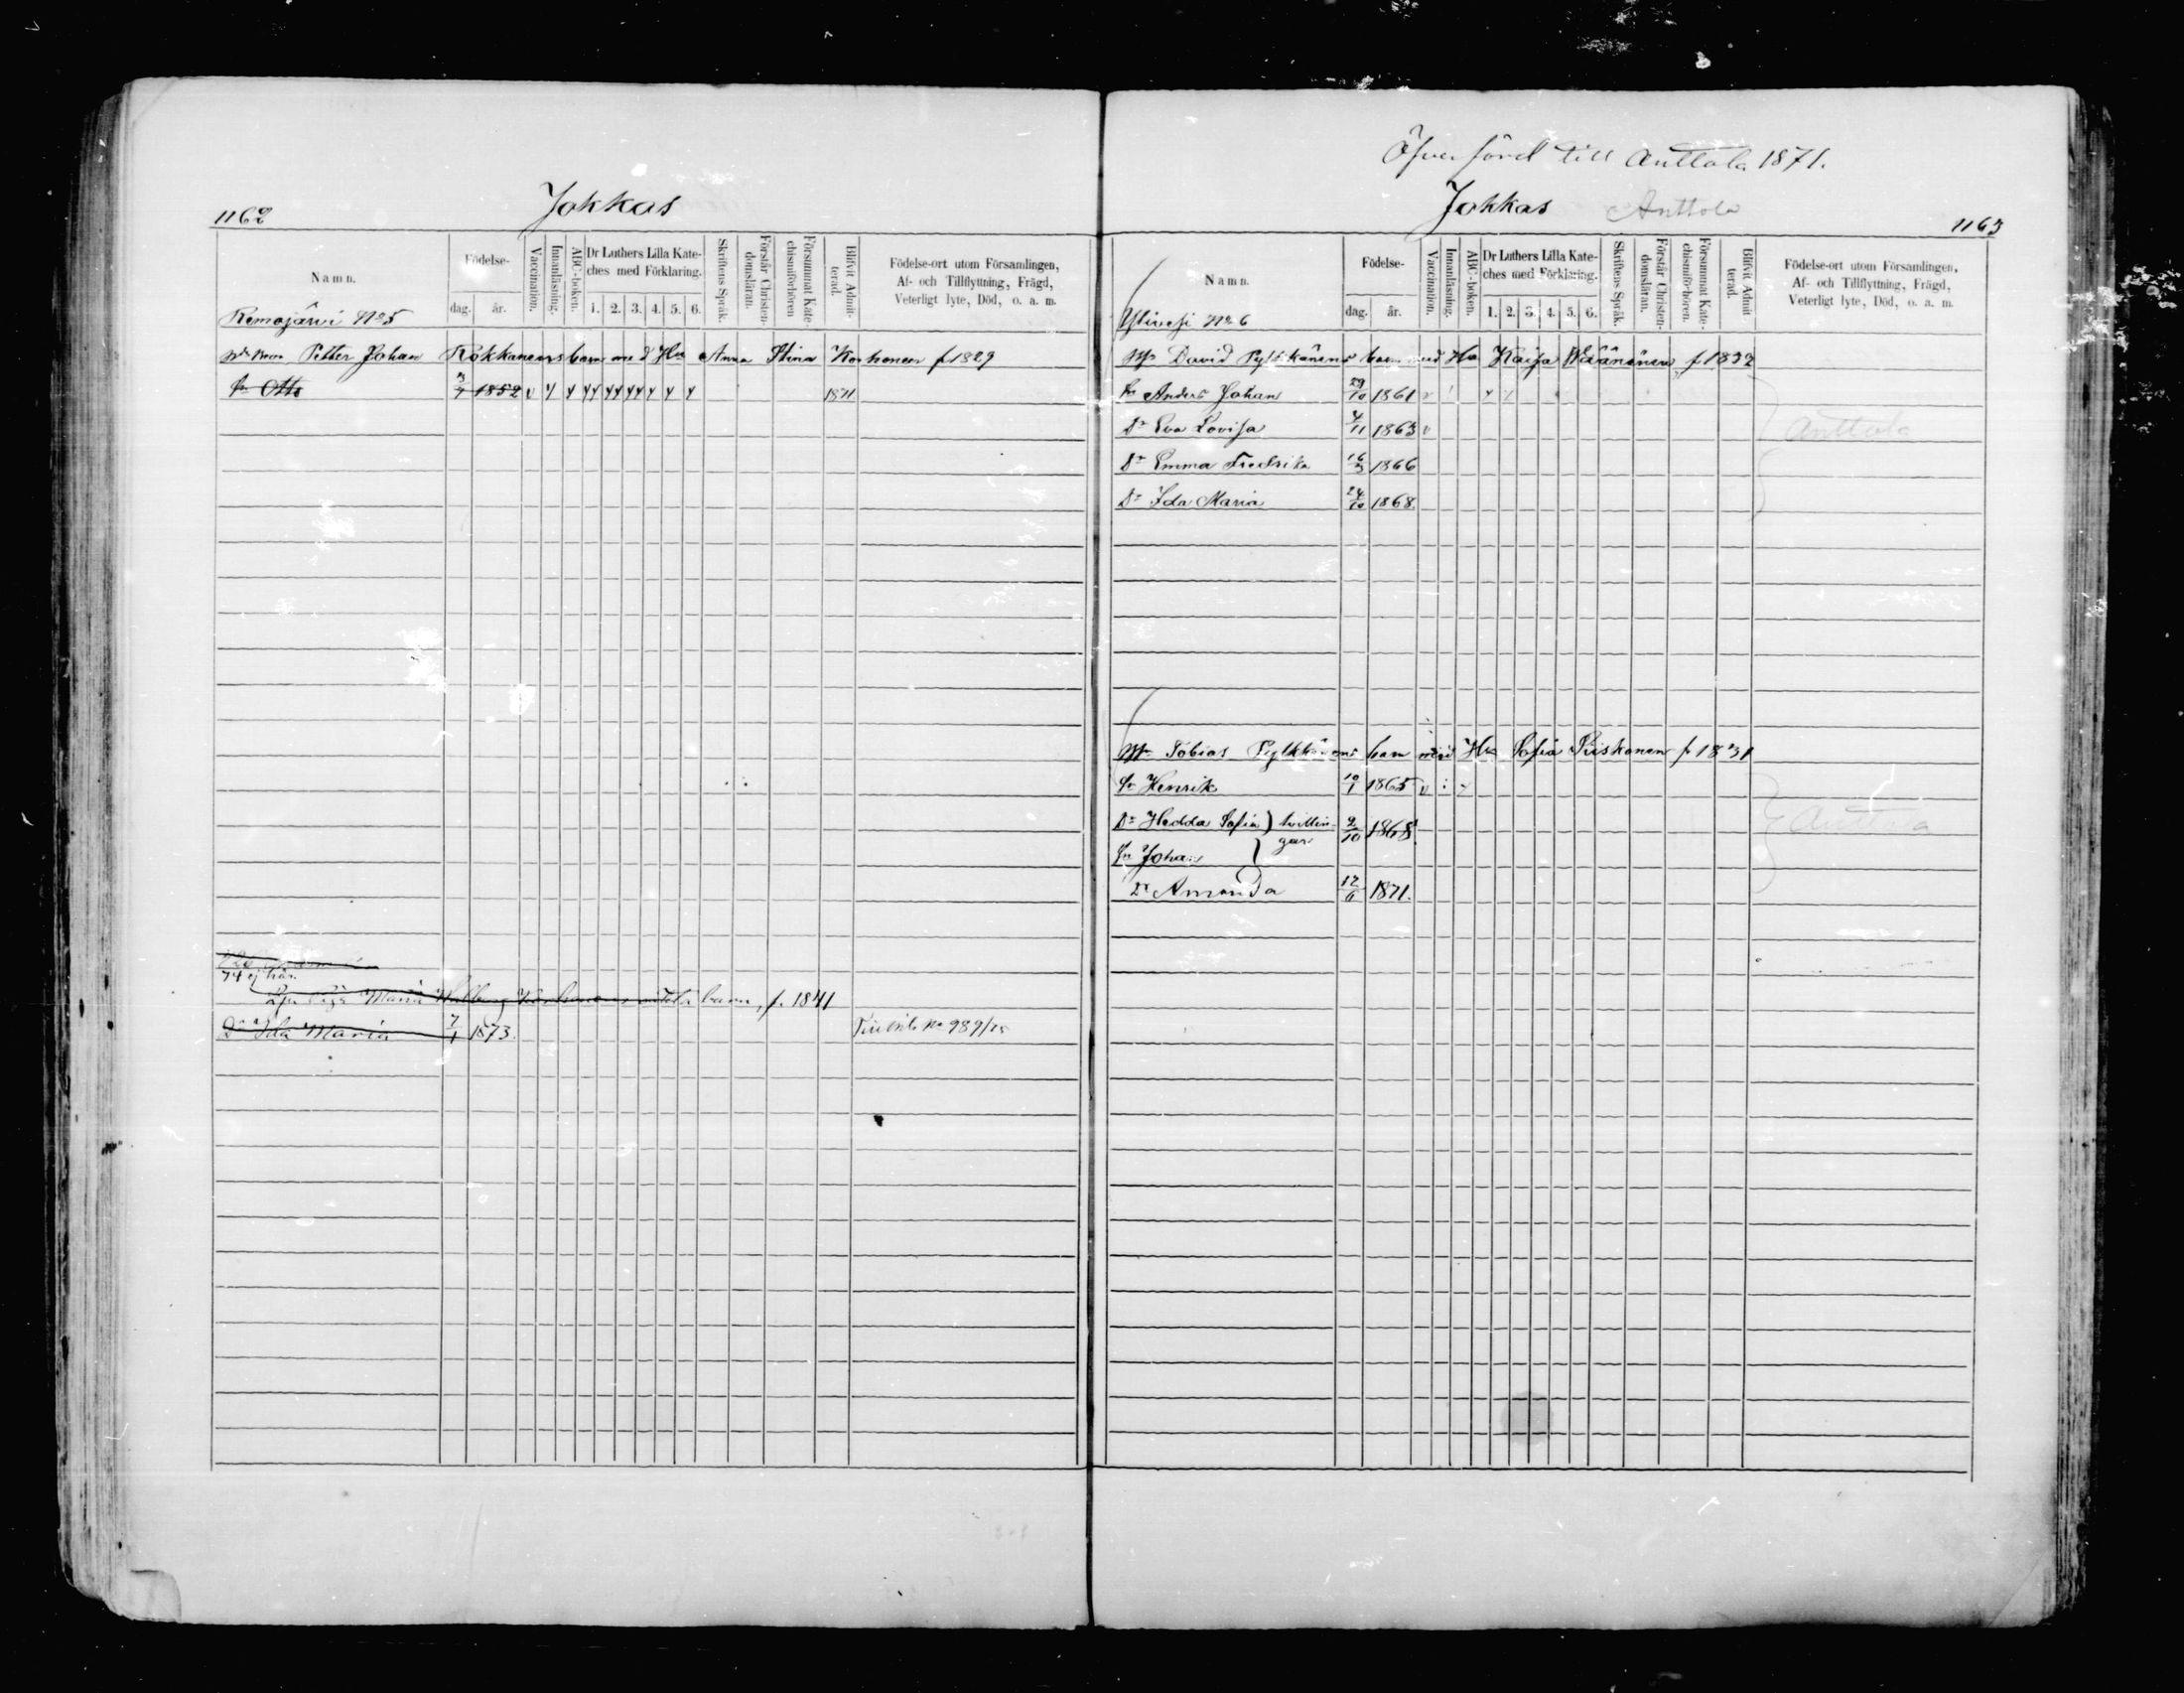 1162
Jokkas
Namn.
Födelse-
dag.
år.
Vaccination.
Innanläsning.
ABC-boken.
Dr Luthers Lilla Kate-
ches med Förklaring.
1. 2. 3. 4. 5. 6.
Skriftens Språk.
Förstår Christen-
domsläran.
Försummat Kate-
chismiförhören
Blifvit Admit-
terad.
Födelse-ort utom Församlingen,
Af- och Tillflyttning, Frägd,
Veterligt lyte, Död, o. a. m.
Remojärvi No 5
Petter Johan Rokkanens barn med Hu Anna Stina Korhonen f 1829
Sn Otto 3/7 1852 v 1871
74 ej här.
Maria Walborg barn, f. 1841
Dr Ida Maria 7/1 1873. No 989/75
Öfverförd till Anttola 1871.
Jokkas Anttola
1163
Namn.
Födelse-
dag.
år.
Vaccination.
Innanläsning.
ABC-boken.
Dr Luthers Lilla Kate-
ches med Förklaring.
1. 2. 3. 4. 5. 6.
Skriftens Språk.
Förstår Christen-
domsläran.
Försummat Kate-
chismiförhören.
Blifvit Admit-
terad.
Födelse-ort utom Församlingen,
Af- och Tillflyttning, Frägd,
Veterligt lyte, Död, o. a. m.
Ylivesi No 6
David Pylkkänens barn med Hu Kaisa Väänänen f 1832
Sn Anders Johan 29/10 1861 v
Dr Eva Lovisa 4/11 1863 v Anttola
Dr Emma Fredrika 16/3 1866
Dr Ida Maria 24/10 1868
Tobias Pylkkänens barn med Hu Sofia Piiskonen f 1831
Sn Henrik 10/1 1865 v
Dr Hedda Sofia } tvillin-
gar 2/10 1868 Anttola
Sn Johan
Dr Amanda 12/6 1871.